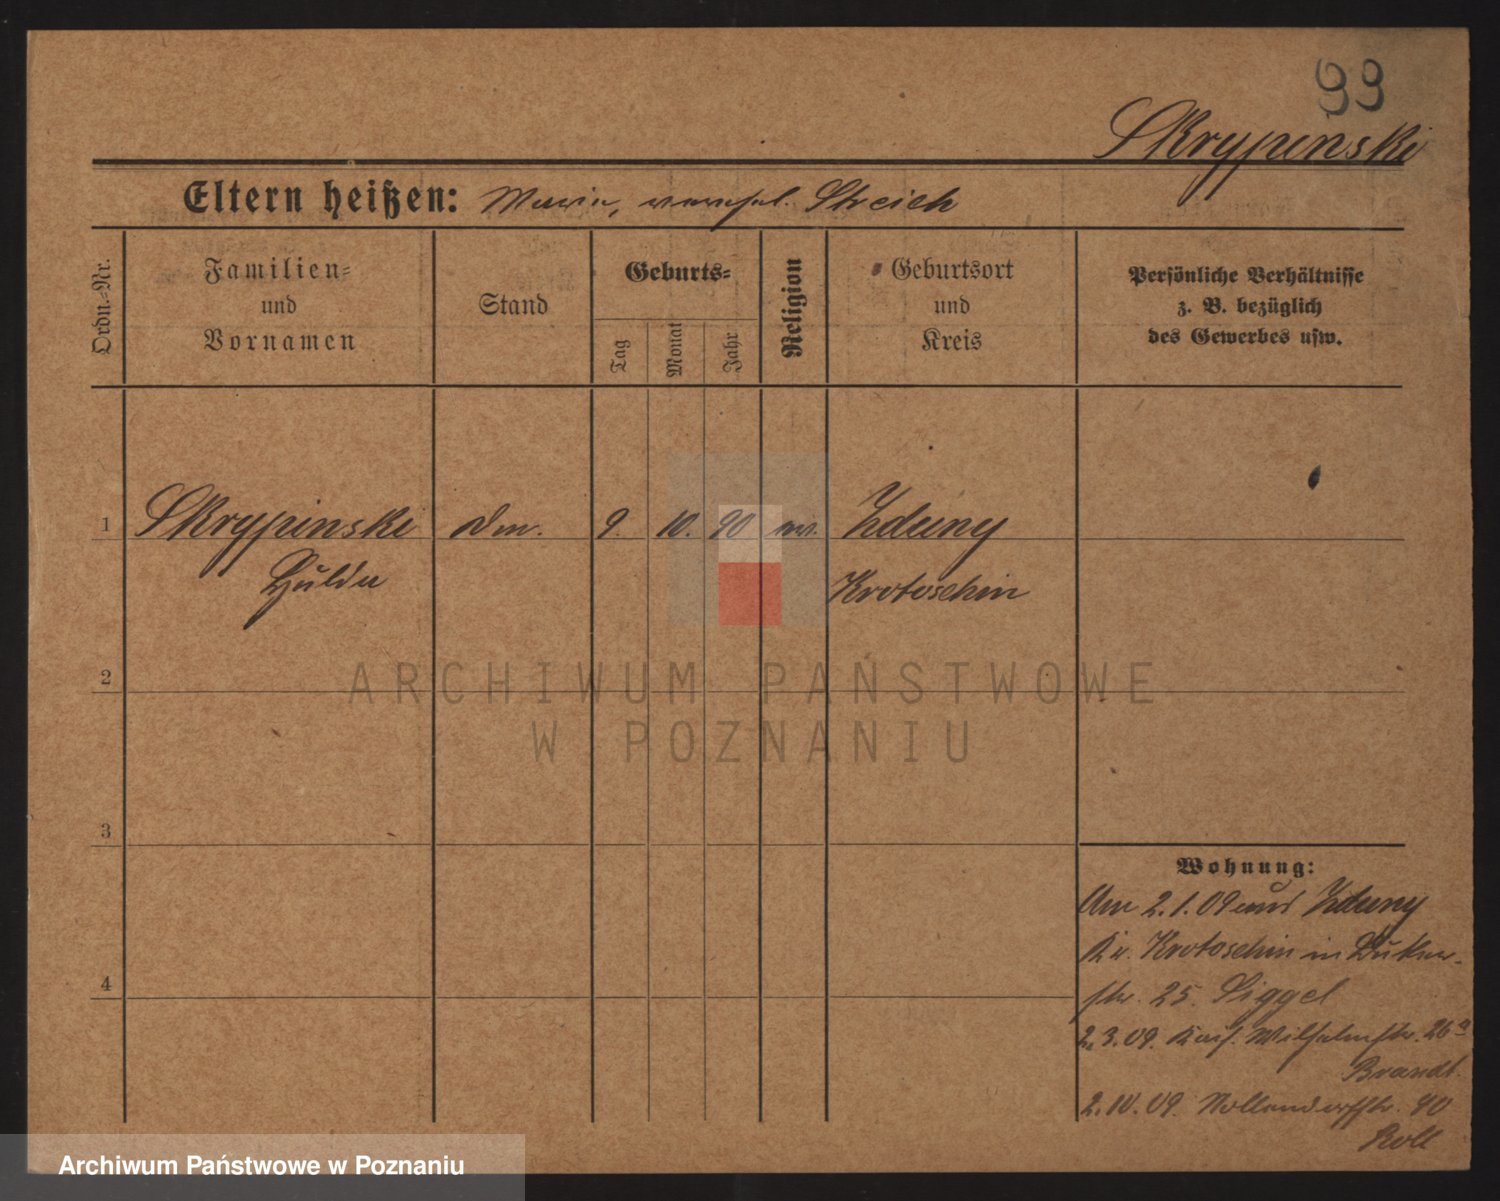 99
Skrypinski
Eltern heißen: Maria, verehel. Streich
Ordn.-Nr.
Familien-
und
Vornamen
Stand
Geburts-
Tag
Monat
Jahr
Religion
Geburtsort
und
Kreis
Persönliche Verhältnisse
z. B. bezüglich
des Gewerbes usw.
1 Skrypinski 9. 10. 90 Zduny
Hulda Krotoschin
2
ARCHIWUM PAŃSTWOWE
W POZNANIU
3
Wohnung:
Am 2.1.09 aus Zduny
Kr. Krotoschin in
4
str. 25. Siggel
2.3.09. Kais. Wilhelmstr. 26a
Brandt.
2.10.09. Nollendorfstr. 40
Roll
Archiwum Państwowe w Poznaniu